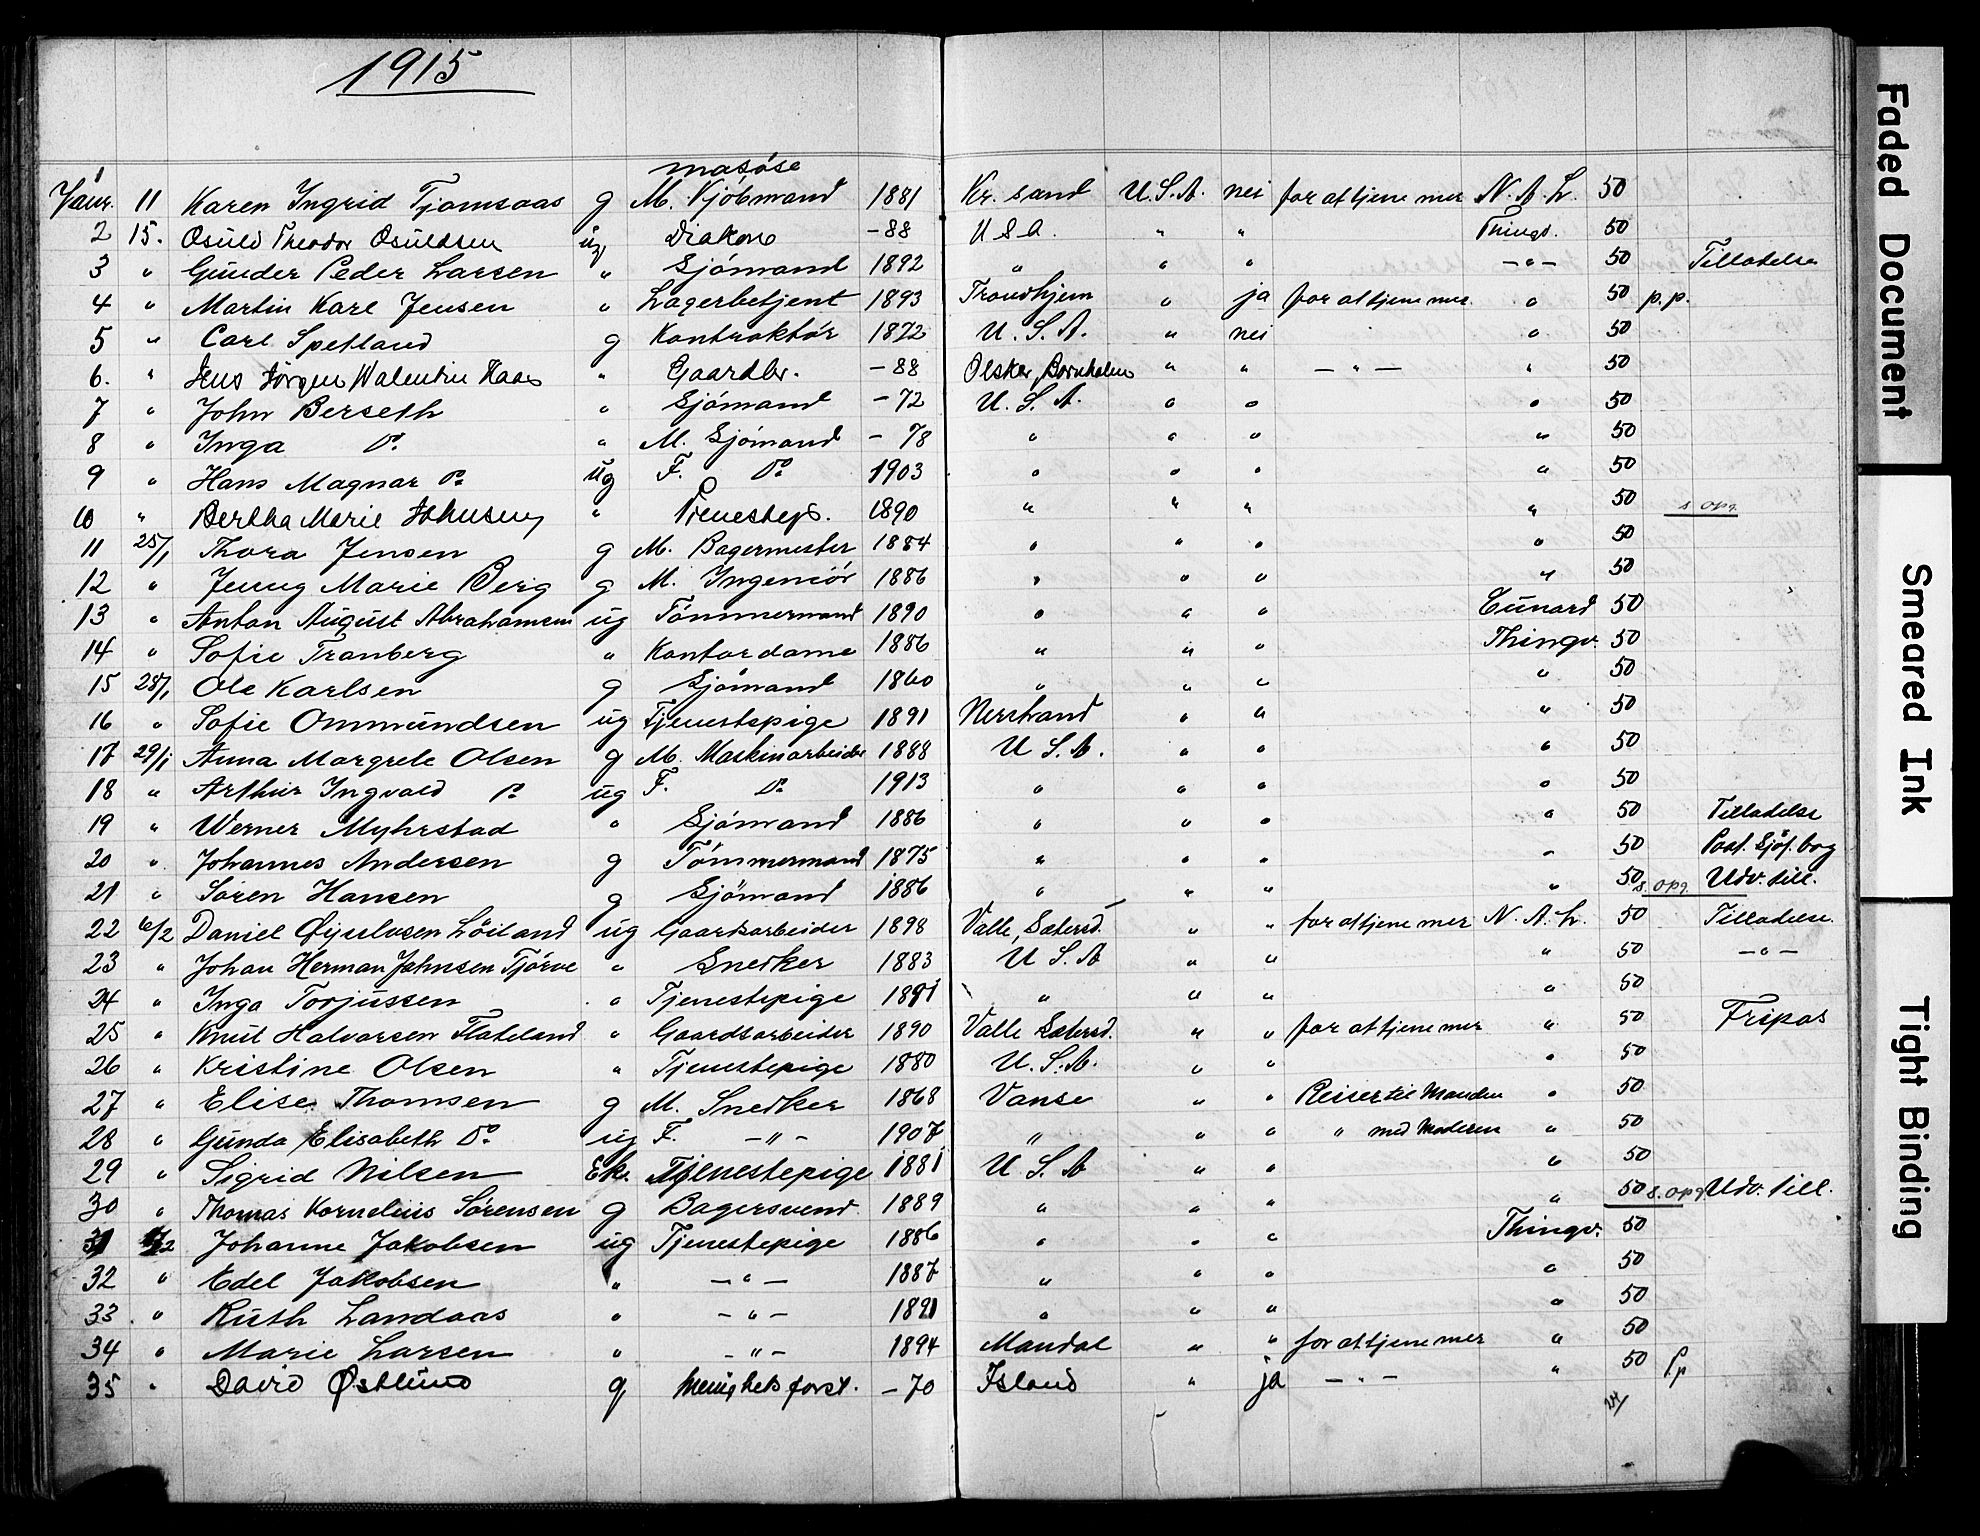 1915
masöse
1 Janr. 11 Karen Ingrid Tjomsaas g M. Kjöbmand 1881 Kr. sand U.S.A. nei for at tjene mer N.A.L. 50
2 15. Osuld Theodor Osuldsen ug Diakon -88 U S A. " " Thingv. 50
3 " Gunder Peder Larsen " Sjömand 1892 " " " -"- 50 Tilladelse
4 " Martin Karl Jensen " Lagerbetjent 1893 Trondhjem " ja for at tjene mer " 50 p.p.
5 " Carl Spetland g Kontraktör 1872 U.S.A. " nei " 50
6. " Jens Jörgen Valentin Kaas " Gaardbr. -88 Olsker, Bornholm " " -"- " 50
7 " John Berseth " Sjömand -72 U.S.A. " " " 50
8 " Inga Do " M. Sjömand -78 " " " " 50
9 " Hans Magnar Do ug F. Do 1903 " " " " 50
10 " Bertha Marie Johnsen " Tjenestep. 1890 " " " " 50 s opg.
11 25/1 Thora Jensen g M. Bagermester 1884 " " " " 50
12 " Jenny Marie Berg g M. Ingeniör 1886 " " " " 50
13 " Anton August Abrahamsen ug Tömmermand 1890 " " " Cunard 50
14 " Sofie Tranberg " Kontordame 1886 " " " Thingv. 50
15 28/1 Ole Karlsen g Sjömand 1860 " " " " 50
16 " Sofie Ommundsen ug Tjenestepige 1891 Nerstrand " " " 50
17 29/1 Anna Margrete Olsen g M. Maskinarbeider 1888 U S.A. " " " 50
18 " Arthur Ingvald Do ug F. Do 1913 " " " " 50
19 " Werner Myhrstad " Sjömand 1886 " " " " 50 Tilladelse
20 " Johannes Andersen g Tömmermand 1875 " " " " 50 Paaf. Sjöf. bog
21 " Sören Hansen g Sjömand 1886 " " " " 50 s. opg. Udv. till.
22 6/2 Daniel Øyulvsen Löiland ug Gaardsarbeider 1898 Valle, Sætersd. " " for at tjene mer N.A.L. 50 Tilladelse.
23 " Johan Herman Johnsen Tjörve " Snedker 1883 U S.A " " " 50 -"-
24 " Inga Torjussen " Tjenestepige 1891 " " " " 50
25 " Knut Halvorsen Flateland " Gaardsarbeider 1890 Valle Sætersd. " " for at tjene mer " 50 Fripas
26 " Kristine Olsen " Tjenestepige 1880 U.S.A. " " " 50
27 " Elise Thomsen g M. Snedker 1868 Vanse " " Reiser til Manden " 50
28 " Gunda Elisabeth Do ug F. -"- 1907 " " " " med Moderen " 50
29 " Sigrid Nilsen Eke. Tjenestepige 1881 U S.A " " " 50
30 " Thomas Kornelius Sörensen g Bagersvend 1889 " " " " 50 s. opg. Udv. till.
31 /2 Johanne Jakobsen ug Tjenestepige 1886 " " " Thingv. 50
32 " Edel Jakobsen " -"- 1887 " " " " 50
33 " Ruth Landaas " -"- 1891 " " " " 50
34 " Marie Larsen " -"- 1894 Mandal " " for at tjene mer " 50
35 " David Østlund g Menighetsforst. -70 Island " ja -"- " 50 p.p
Faded Document
Smeared Ink
Tight Binding